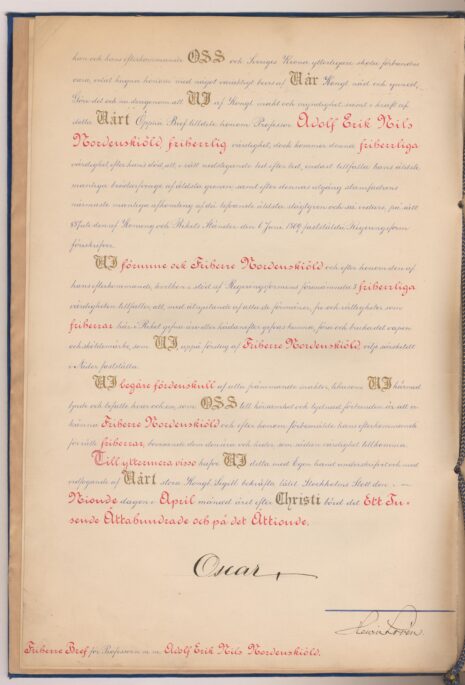 hans och hans efterkommande OSS och Sveriges Krona ytterligare skola förbundne
vara, velat hugna honom med något varaktigt bevis af Vår Kongl. nåd och ynnest,
Göra det och nu derigenom att VI af Kongl. makt och myndighet samt i kraft af
detta Vårt Öppna Bref tilldela honom Professor Adolf Erik Nils
Nordenskiöld friherrlig värdighet, dock kommer denna friherrliga
värdighet, efter hans död, att, i rätt nedstigande led efter led, endast tillfalla hans äldste
manlige bröstarfvinge af äldsta grenen samt efter dennas utgång stamfadrens
närmaste manliga afkomling af då lefvande äldsta slägtgren och så vidare, på sätt
37 § uti den af Konung och Rikets Ständer den 6 Juni 1809 fastställda Regeringsform
föreskrifver.
VI förunne ock Friherre Nordenskiöld och efter honom den af
hans efterkommande, hvilken i stöd af Regeringsformens förenämnda § friherrliga
värdigheten tillfaller, att, med åtnjutande af alla de förmåner, fri- och rättigheter som
friherrar här i Riket gifna äro eller hädanefter gifvas kunna, föra och bruka det vapen
och sköldemärke, som VI uppå färdig af Friherre Nordenskiöld vilja särskildt
i Nåder fastställa.
VI begäre fördenskull af alla främmande makter, likasom VI härmed
bjude och befalle hvar och en, som OSS till hörsamhet och lydnad förbunden är, att er-
känna Friherre Nordenskiöld och efter honom förbemälde hans efterkommande
för rätte friherrar, bevisande dem den ära och heder, som sådan värdighet tillkomma.
Till yttermera visso hafve VI detta med Egen hand underskrifvit och med
vidfogande af Vårt stora Kongl. Sigill bekräfta låtit. Stockholms Slott den
Nionde dagen i April månad året efter Christi börd det Ett Tu-
sende Åttahundrade och på det Åttionde.
Oscar
Friherre Bref för Professorn m. m. Adolf Erik Nils Nordenskiöld.